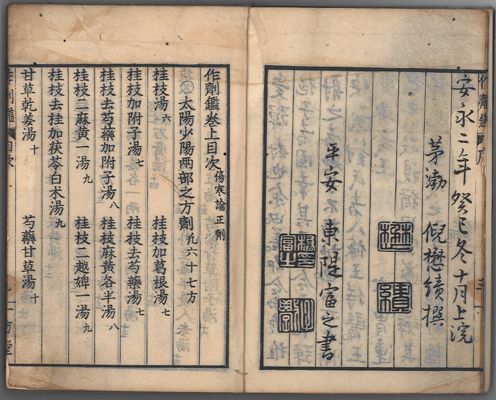 安永二年癸巳冬十月上浣
茅渤 倪懋績撰
平安 東隄富之書
作劑鑑卷上目次 傷寒論正劑
太陽少陽两部之方劑凢六十七方
桂枝湯六 桂枝加葛根湯七
桂枝加附子湯七 桂枝去芍藥湯七
桂枝去芍藥加附子湯八 桂枝麻黃各半湯八
桂枝二麻黃一湯九 桂枝二越婢一湯九
桂枝去桂加茯苓白朮湯九
甘草乾姜湯十 芍藥甘草湯十